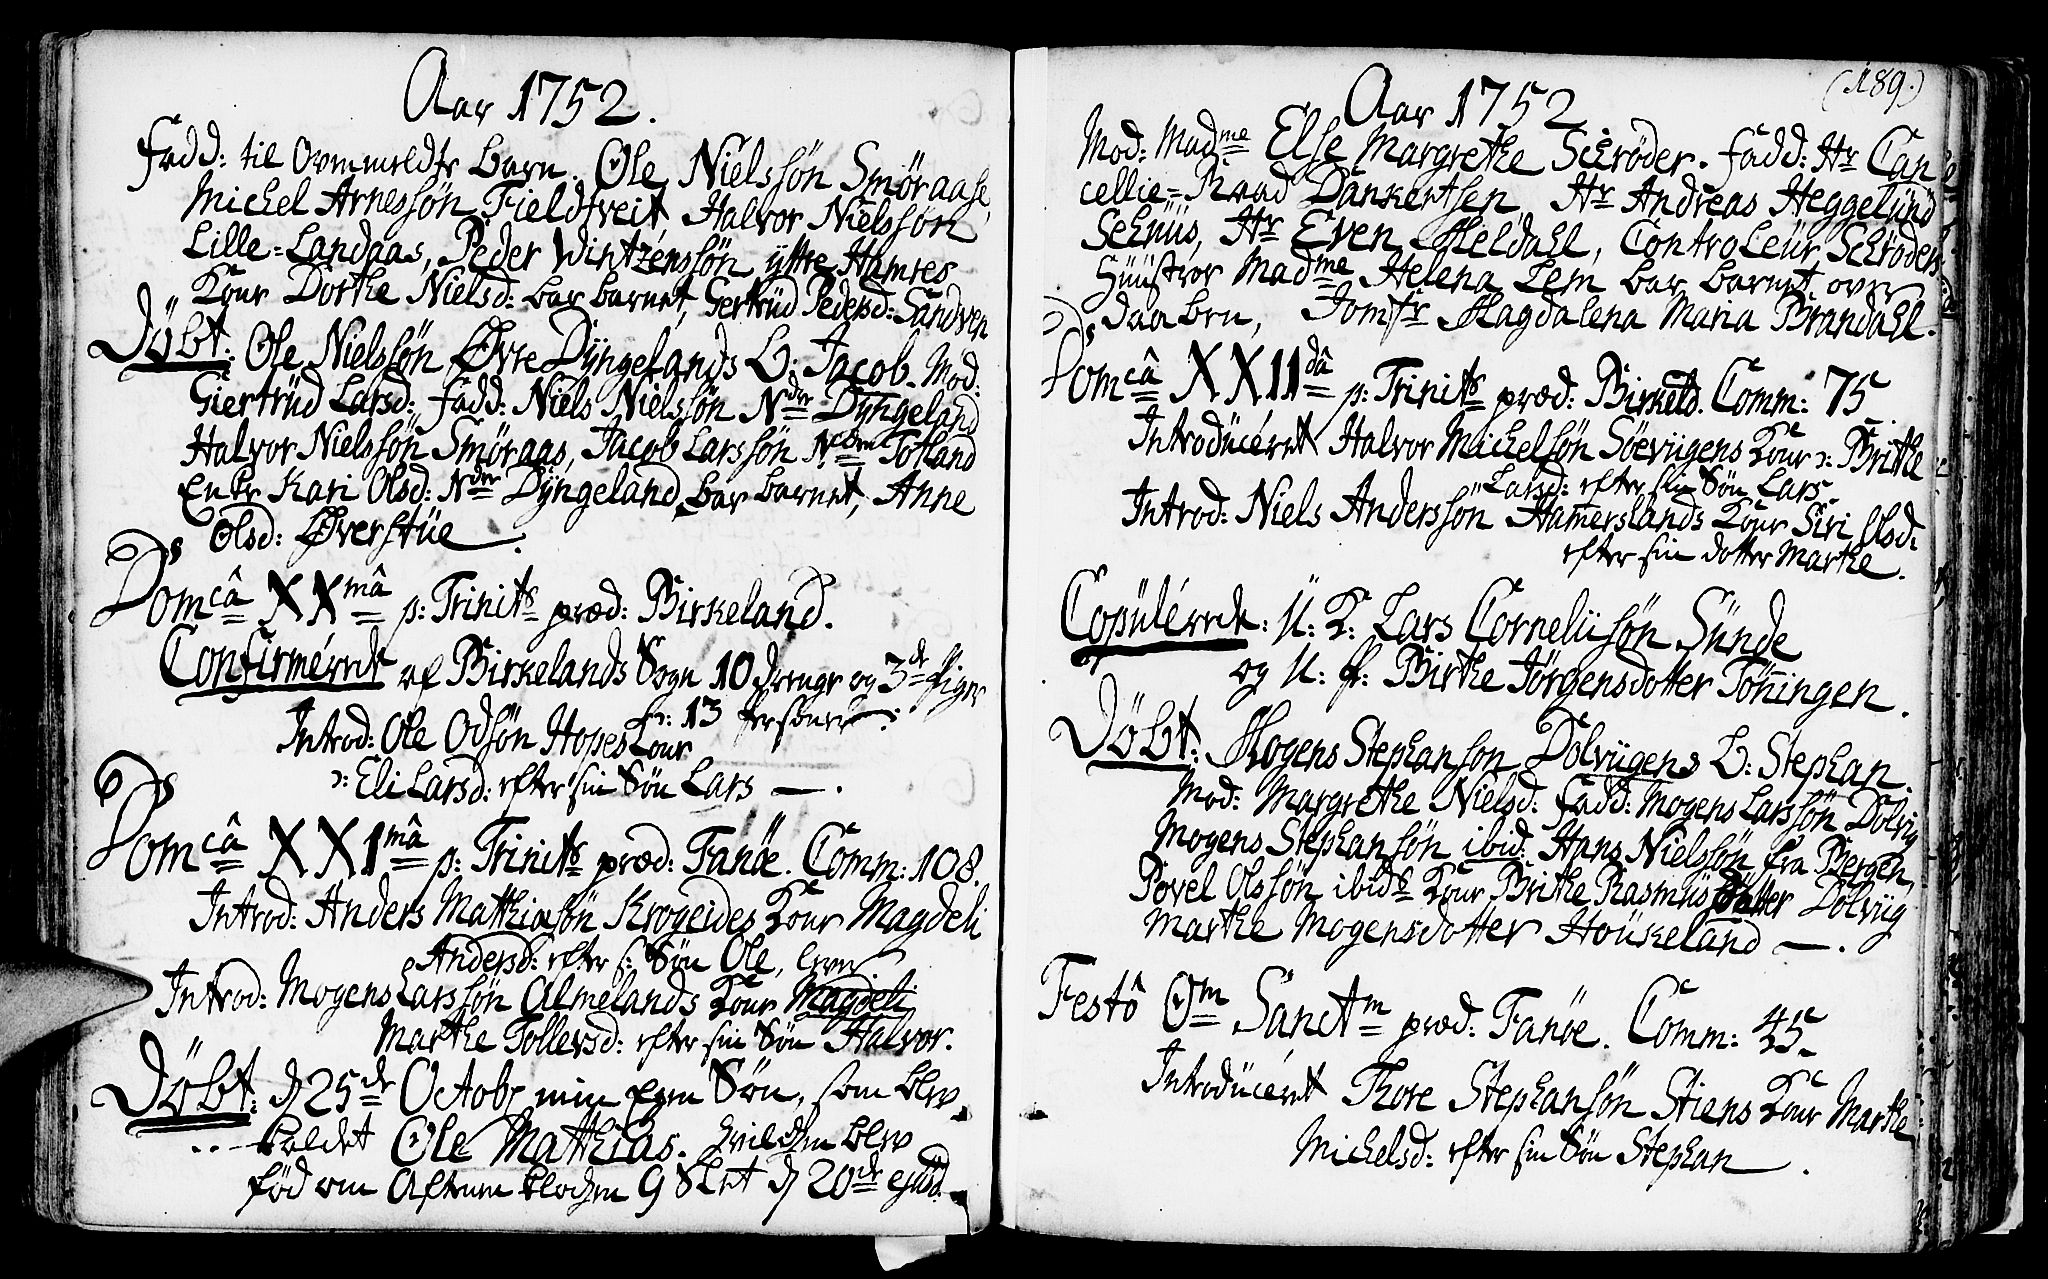 Aar 1752.
Fadd: til Ovenmeldte barn. Ole Nielssön Smöraase,
Michel Arnessön Fieldtveit, Halvor Nielssön
Lille=Landaas, Peder Wintzenssön yttre Hamres
Kone Dorthe Nielsd: bar barnet, Gertrüd Pedersd: Sandven
Döbt: Ole Nielssön Øvre Dÿngelands b: Jacob. Mod:
Giertrüd Larsd: Fadd: Niels Nielssön Ndre Dÿngeland
Halvor Nielssön Smöraas, Jacob Larssön Nedre Totland
Enke Kari Olsd: Ndre Dÿngeland bar barnet, Anne
Olsd: Øverstüe.
Domcâ XXmâ p: Trinits præd: Birkeland.
Confirméret af Birkelands Sogn 10 drenge og 3de Piger
ɔ: 13 Personer.
Introd: Ole Odsön Hopes Kone
ɔ: Eli Larsd: efter sin Sön Lars —.
Domcâ XXImâ p: Trinits præd: Fanöe. Comm: 108.
Introd: Anders Matthiasön Krogeides Kone Magdeli
Andersd: efter s: Sön Ole,
Introd: Mogens Larssön Almelands Kone Magdeli
Marthe Tollersd: efter sin Sön Halvor.
Döbt: d 25de Octobr min Egen Sön, som blev
kaldet Ole Matthias. hvilchen blev
fød om Aftenen klochen 9 Slet d 20de ejüsd.
(189.)
Aar 1752
Mod: Madme Else Margrethe Schröder. Fadd: Hr Can
cellie=Raad Dankertsen Hr Andreas Heggelünd
Schnüs, Hr Even Meldahl, Controleür Schröders
Hüüstroe Madme Helena Lem bar barnet over
daaben, Jomfr Magdalena Maria Brandahl.
Domcâ XXIIdâ p: Trinits præd: Birkeld. Comm: 75.
Introdüceret Halvor Michelsön Söevigens Kone ɔ: Brithe
Larsd: efter sin Sön Lars.
Introd: Niels Anderssön Hamerslands Kone Siri Olsd:
efter sin dotter Marthe.
Copüléret: U: K: Lars Corneliisön Sünde
og U: P: Birthe Jörgensdotter Töningen.
Döbt: Mogens Stephanson Dolviigens b: Stephan.
Mod: Margrethe Nielsd: Fadd: Mogens Larssön Dolvig
Mogens Stephansön ibid: Hans Nielssön fra Bergen,
Povel Olssön ibids Kone Brithe Rasmüsdatter Dolviig
Marthe Mogensdotter Houkeland —.
Festô Om Sanctm præd: Fanöe. Comm: 45.
Introdüceret Thore Stephansön Stiens Kone Marthe
Michelsd: efter sin Sön Stephan.